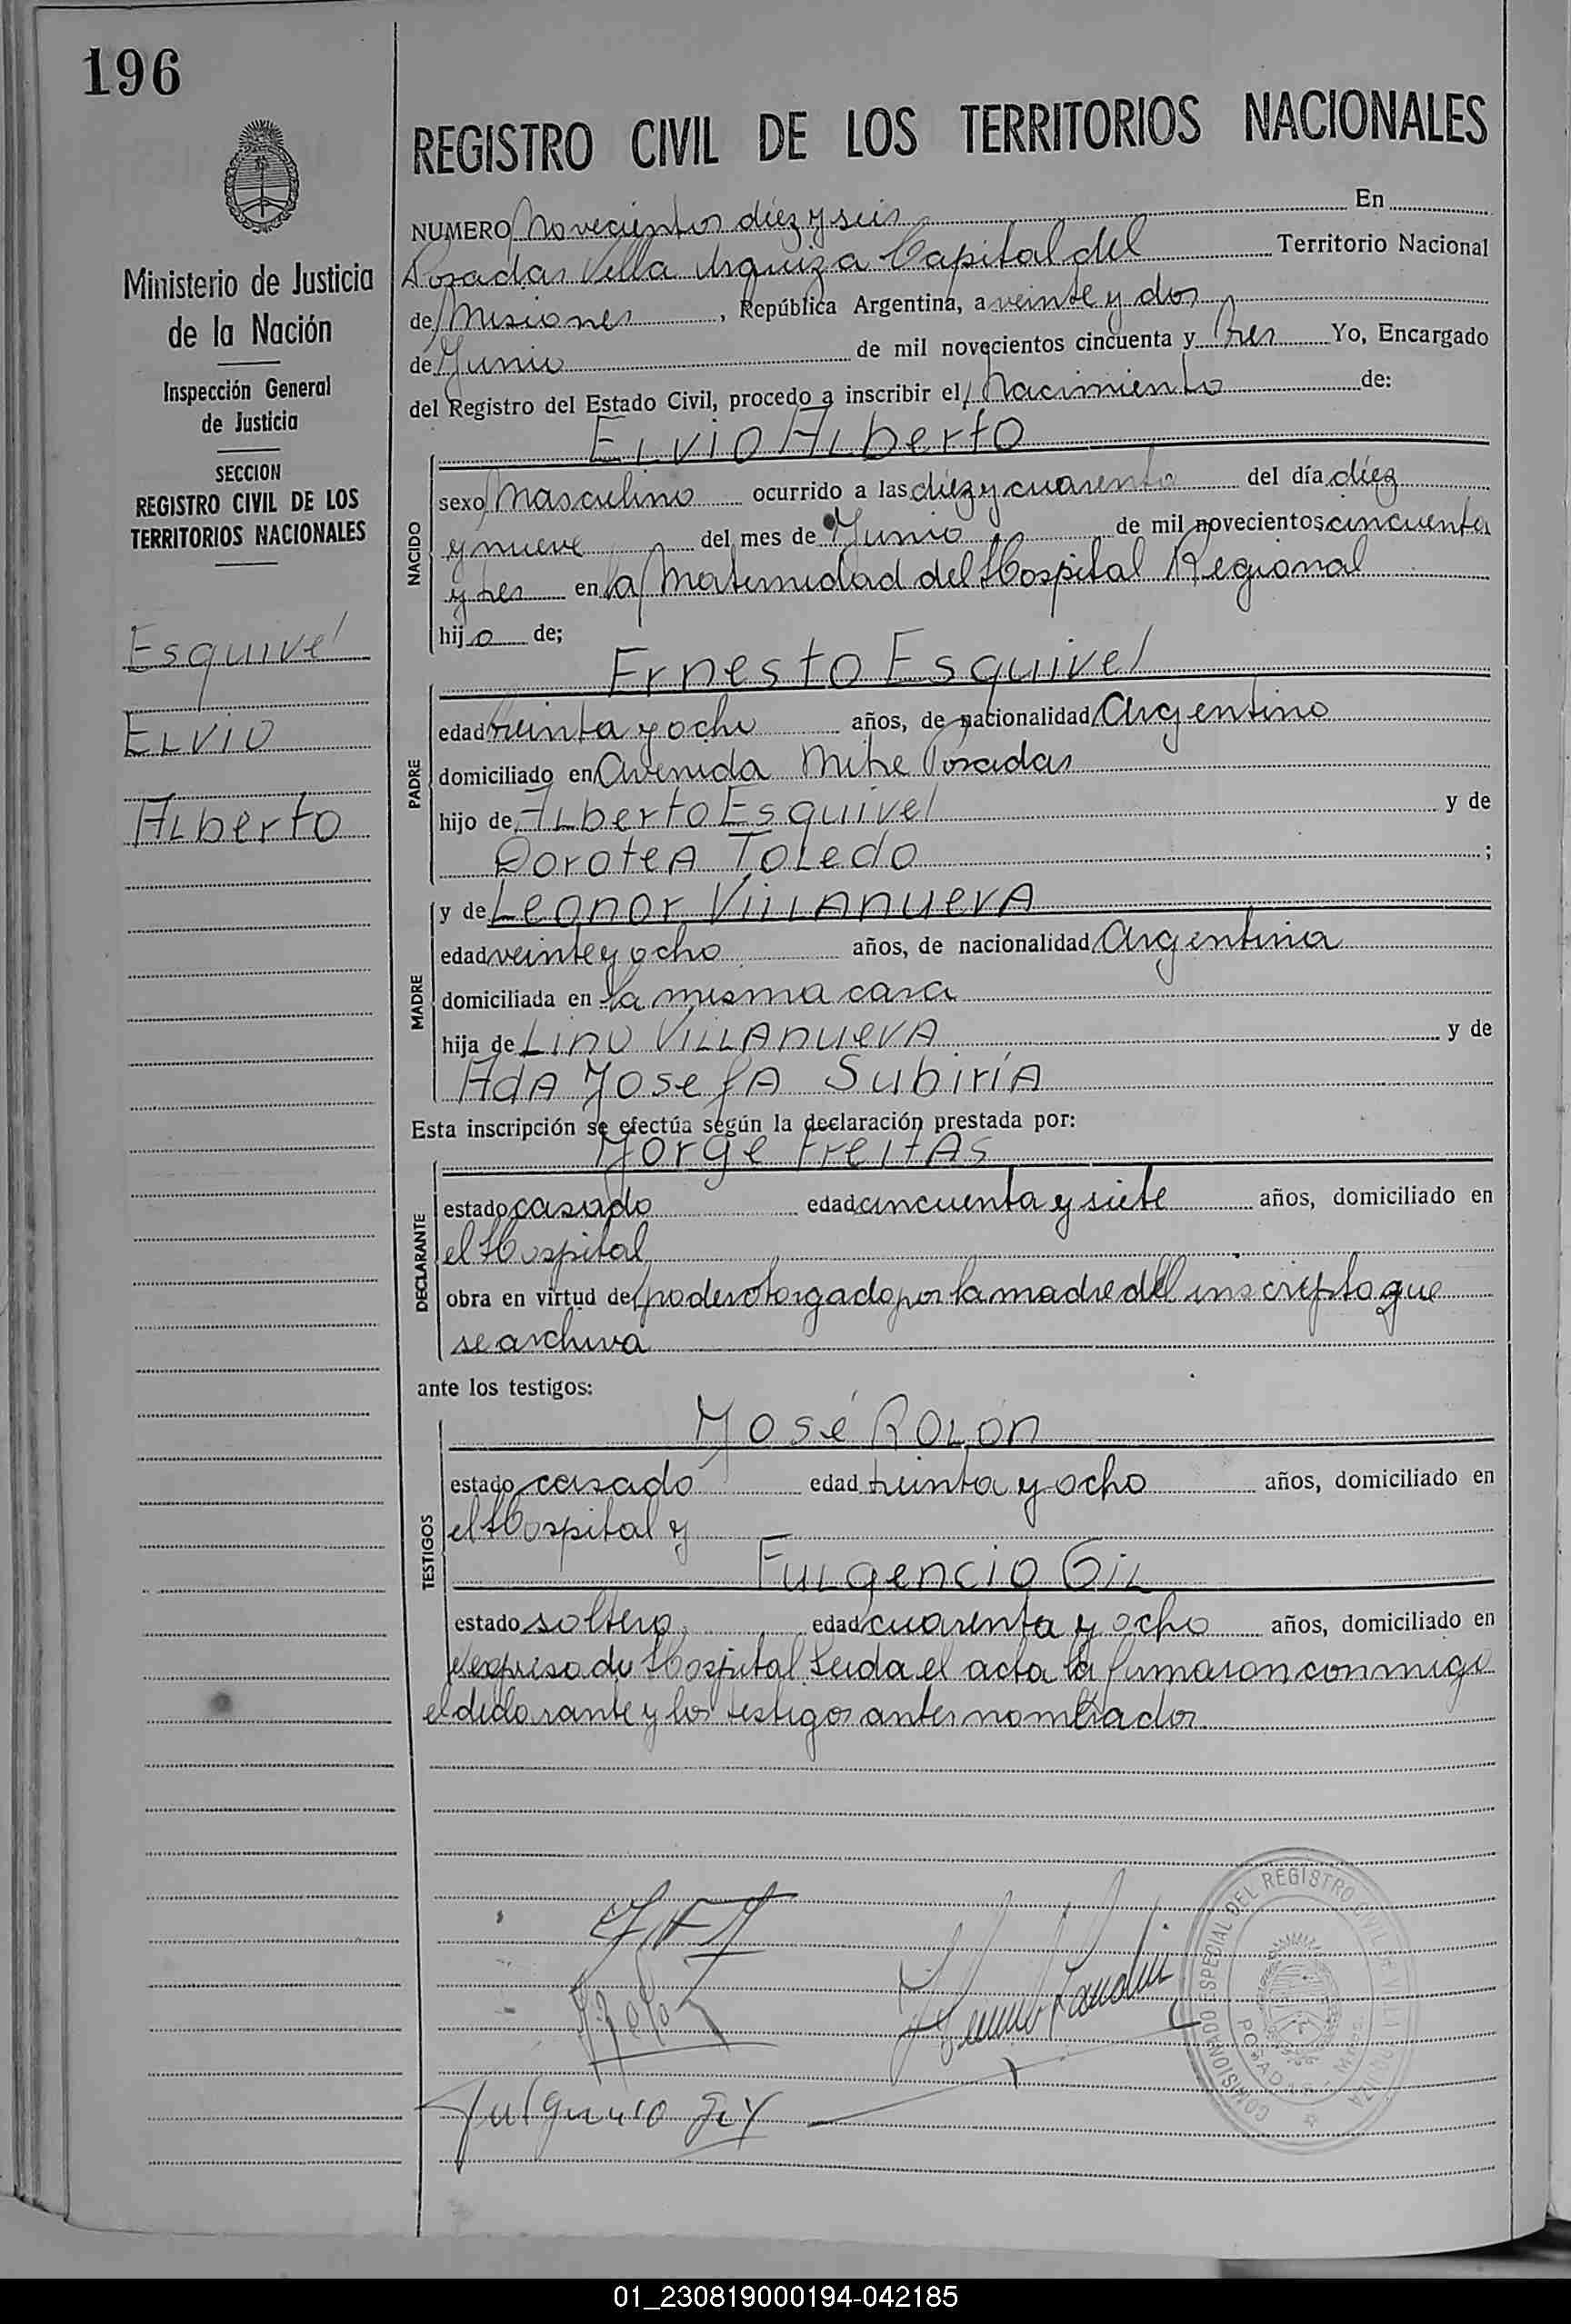 196
Ministerio de Justicia
de la Nación
Inspección General
de Justicia
SECCION
REGISTRO CIVIL DE LOS
TERRITORIOS NACIONALES
Esquivel
Elvio
Alberto
REGISTRO CIVIL DE LOS TERRITORIOS NACIONALES
NUMERO Novecientos diez y seis En
Posadas Villa Urquiza Capital del Territorio Nacional
de Misiones, República Argentina, a veinte y dos
de Junio de mil novecientos cincuenta y tres Yo, Encargado
del Registro del Estado Civil, procedo a inscribir el Nacimiento de:
Elvio Alberto
NACIDO
sexo Masculino ocurrido a las diez y cuarenta del día diez
y nueve del mes de Junio de mil novecientos cincuenta
y tres en la Maternidad del Hospital Regional
hijo de;
Ernesto Esquivel
PADRE
edad treinta y ocho años, de nacionalidad Argentino
domiciliado en Avenida Mitre Posadas
hijo de Alberto Esquivel y de
Dorotea Toledo ;
MADRE
y de Leonor Villanueva
edad veinte y ocho años, de nacionalidad Argentina
domiciliada en la misma casa
hija de Lino Villanueva y de
Ada Josefa Subiría
Esta inscripción se efectúa según la declaración prestada por:
Jorge Freitas
DECLARANTE
estado casado edad cincuenta y siete años, domiciliado en
el Hospital
obra en virtud de poder otorgado por la madre del inscripto que
se archiva
ante los testigos:
José Rolón
TESTIGOS
estado casado edad treinta y ocho años, domiciliado en
el Hospital y
Fulgencio Gil
estado soltero edad cuarenta y ocho años, domiciliado en
el expresado Hospital Leida el acta la firmaron conmigo
el declarante y los testigos antes nombrados
COMISIONADO ESPECIAL DEL REGISTRO CIVIL DE VILLA URQUIZA
POSADAS - Mnes.
Fulgencio Gil
01_230819000194-042185